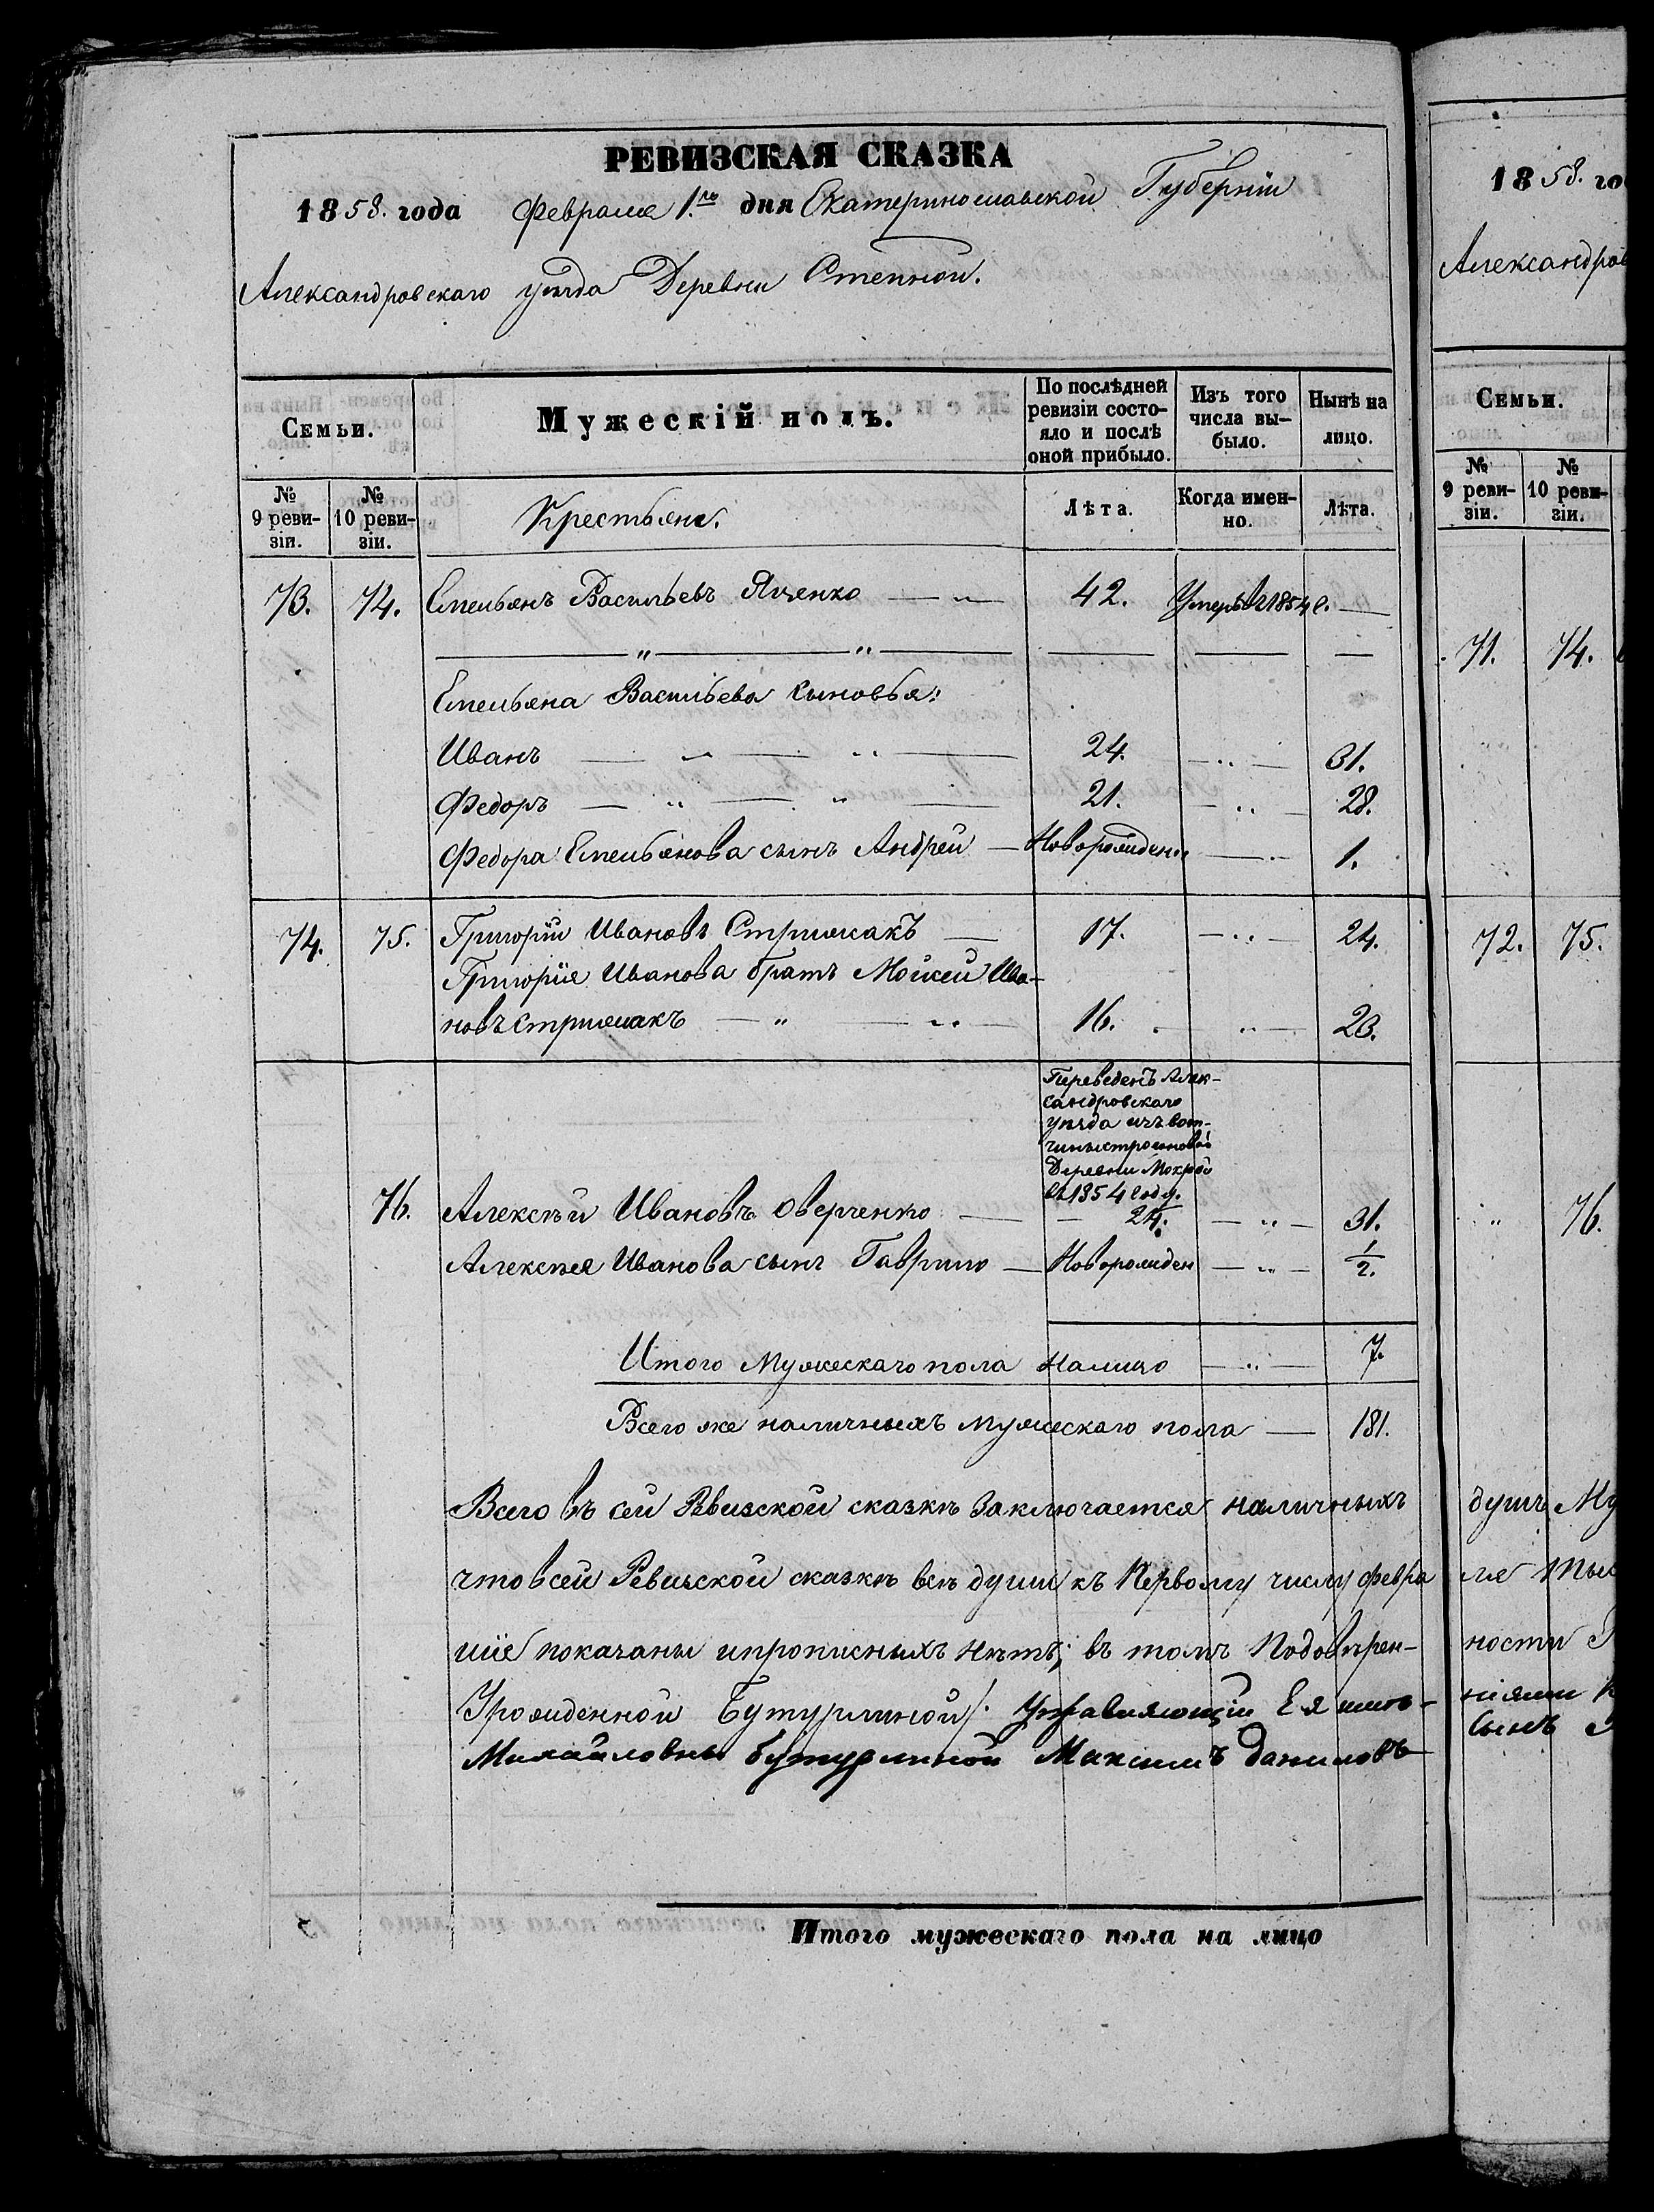 РЕВИЗСКАЯ СКАЗКА
1858. года Февраля 1.го дня Екатеринославской Губерніи
Александровскаго уѣзда Деревни Степной.
Семьи.
Мужескій полъ.
По послѣдней ревизіи состо-
яло и послѣ оной прибыло.
Изъ того числа вы-
было.
Нынѣ на лицо.
№ 9 реви-
зіи.
№ 10 реви-
зіи.
Крестьяне.
Лѣта.
Когда имен-
но.
Лѣта.
73. 74. Емельянъ Васильевъ Яценко — „ — 42. Умеръ въ 1854 г. —
— „ — „ — — — —
Емельяна Васильева сыновья:
Иванъ — „ — „ — 24. — „ — 31.
Федоръ — „ — „ — 21. — „ — 28.
Федора Емельянова сынъ Андрей — Новорожден. — „ 1.
74. 75. Григорій Ивановъ Стрижакъ — 17. — „ — 24.
Григорія Иванова братъ Мойсей Ива-
новъ Стрижакъ — „ — „ — 16. „ — 23.
Переведенъ Алек-
сандровскаго
уѣзда изъ вот-
чины
Деревни Мокрой
въ 1854 году.
76. Алексѣй Ивановъ Оверченко — — 24. — „ — 31.
Алексѣя Иванова сынъ Гаврило — Новорожден — „ — 1/2.
Итого Мужескаго пола Налицо — „ — 7.
Всего же наличныхъ мужескаго пола — 181.
Всего въ сей Ревизской сказкѣ заключается наличныхъ
что въ сей Ревизской сказкѣ всѣ души къ Первому числу февра
шіе показаны и прописныхъ нѣтъ; въ томъ Подовѣрен-
Урожденной Бутурлиной/. Управляющій Ея
Михайловны бутурлиной Максимъ Даниловъ
Итого мужескаго пола на лицо
1858. го
Александров
Семьи.
№ 9 реви-
зіи.
№ 10 реви-
зіи.
71. 74.
72. 75.
„ 76.
душъ Му
ля
ности
ніями
сынъ